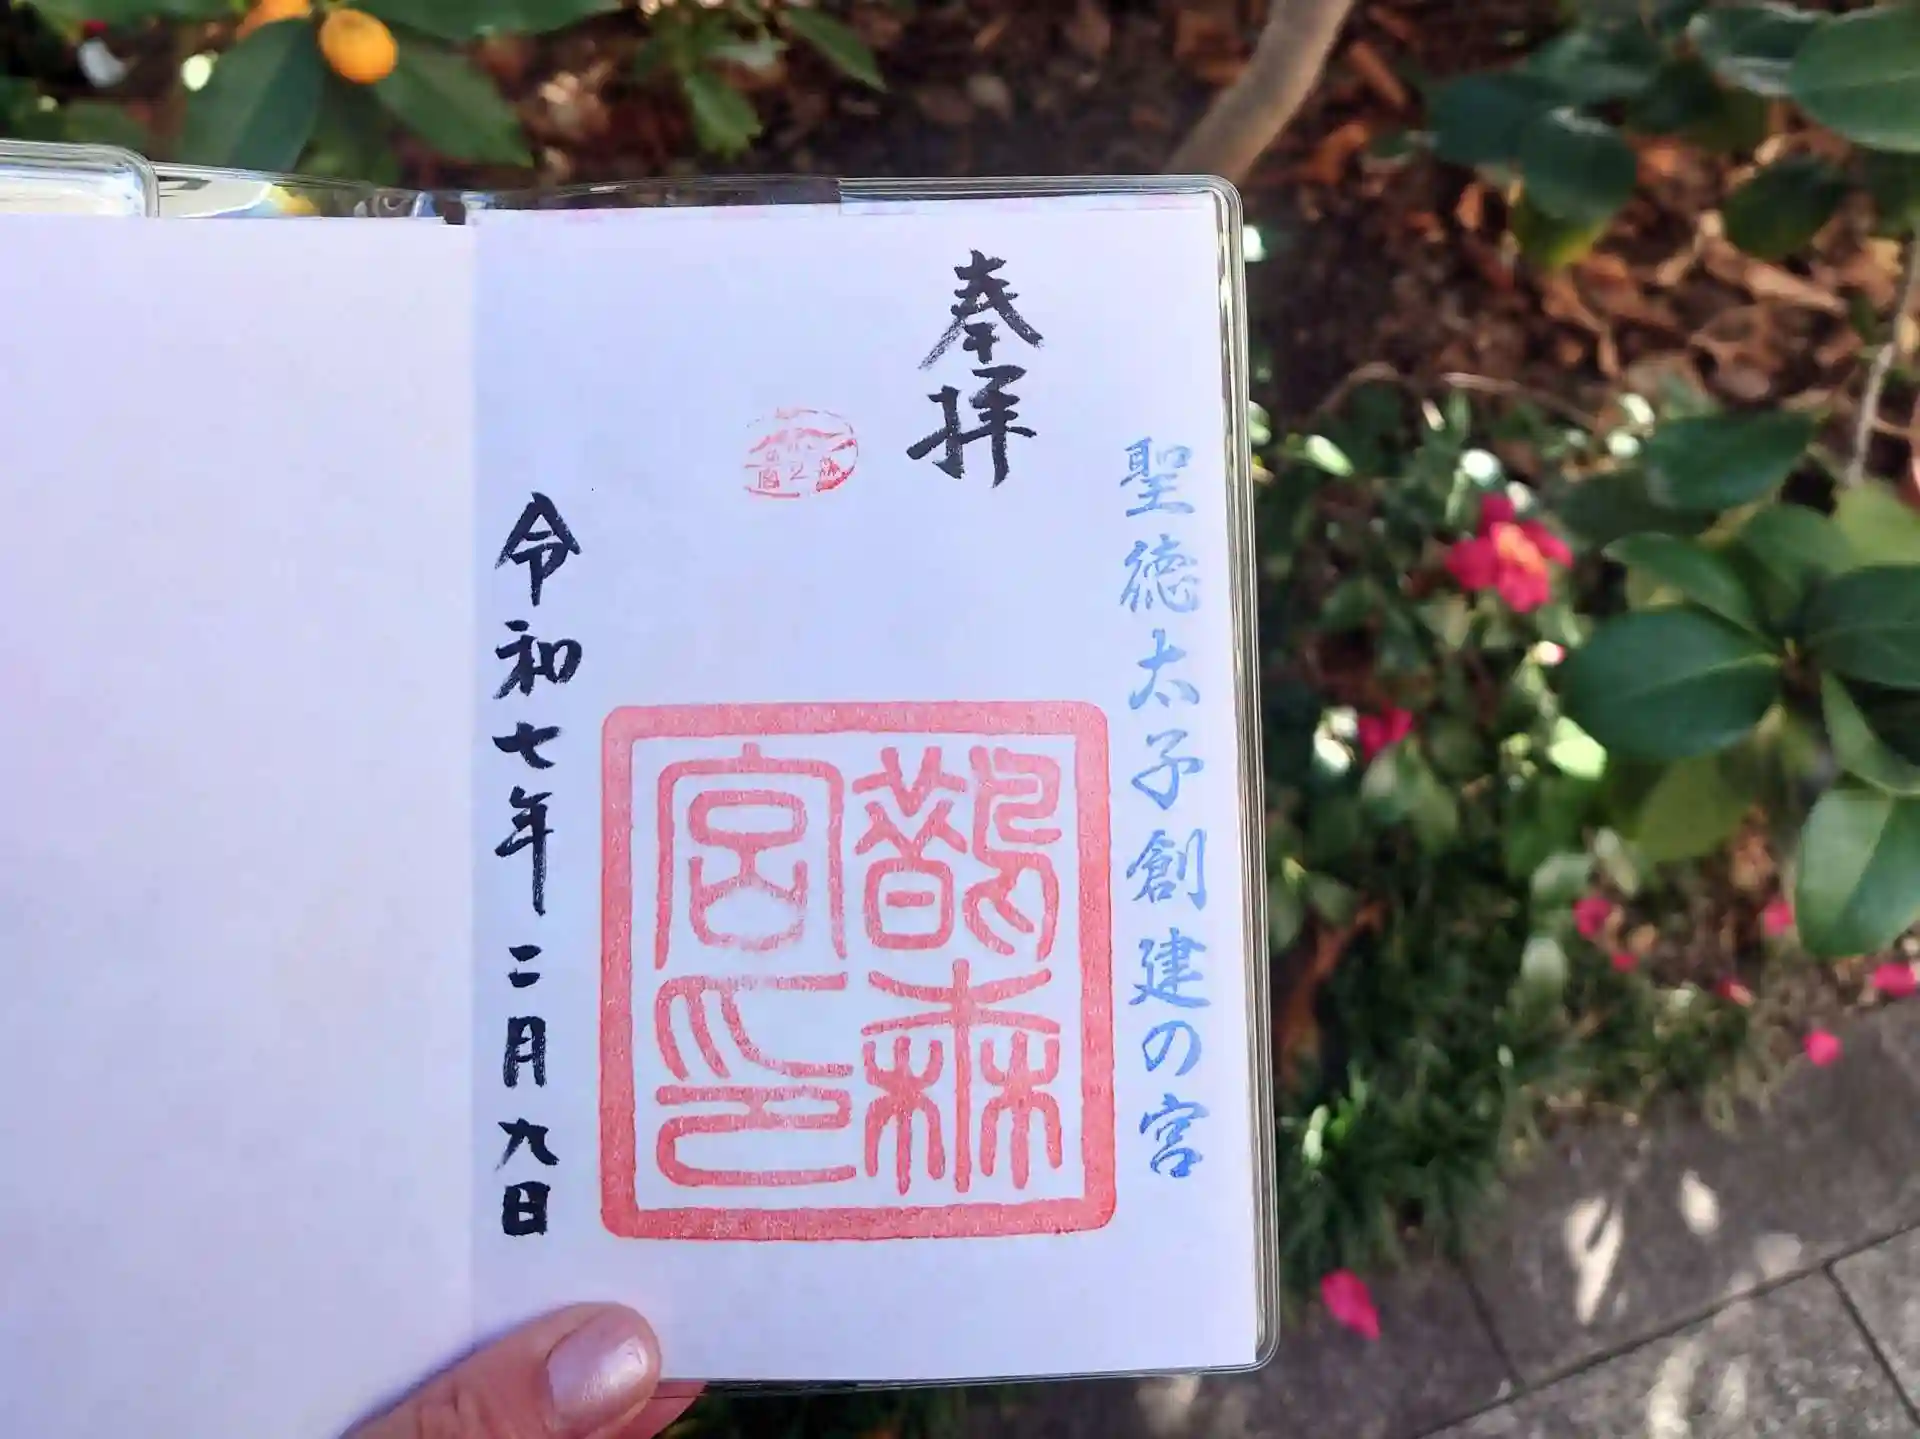 奉拝
聖徳太子創建の宮
鵲森
宮印
令和七年二月九日